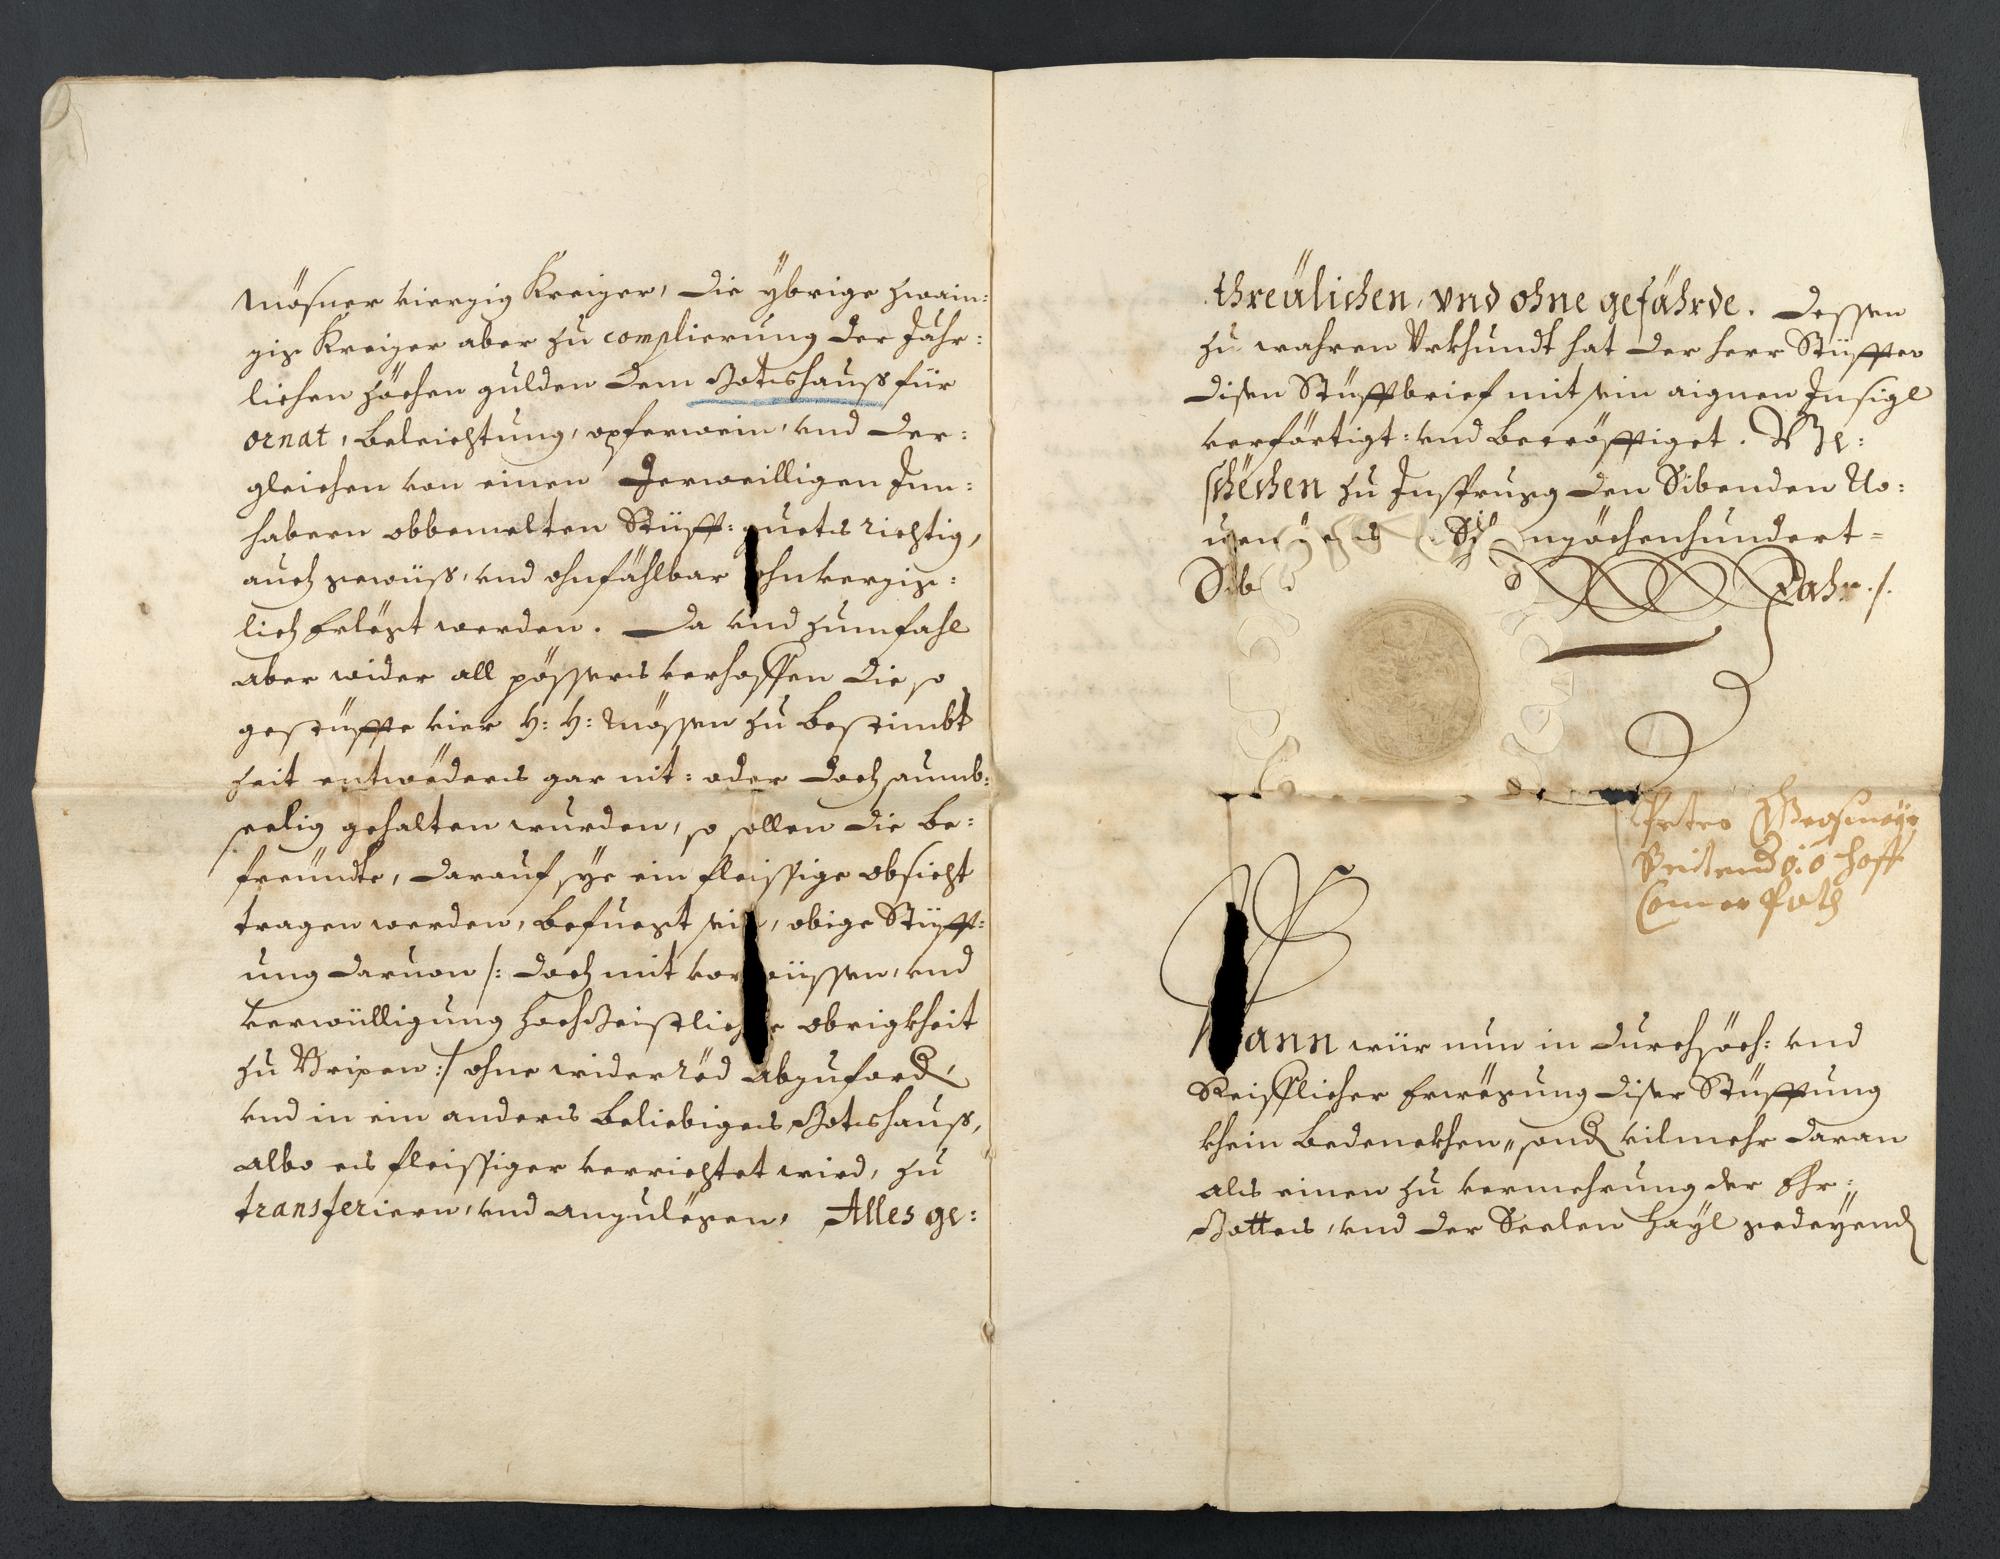 Mösner vierzig Kreizer, die ÿbrige zwain:
zig Kreizer aber zu complierung der Jähr:
lichen zöchen gulden dem Gotshauß für
ornat, beleichtung, opferwein, vnd der:
gleichen von einen Jerweilligen Inn:
habern obbemelten Stüfft: guets richtig,
auch gewüß, vnd ohnfählbar ohnverzig:
lich Erlögt werden. Da vnd zumfahl
aber wider all pössers verhoffen die so
gestüffte vier H: H: Mössen zu bestimbt
zeit entwöders gar nit: oder doch saumb:
seelig gehalten wurden, so sollen die be:
freündte, darauf sÿe ein fleissige obsicht
tragen werden, befuegt sein, obige Stüfft:
ung daruon /: doch mit vorwüssen, vnd
verwülligung hochGeistlicher obrigkheit
zu Brixen :/ ohne widerröd abzuford,
vnd in ein anders beliebiges Gotshauß,
alwo es fleissiger verrichtet wird, zu
transferiern, vnd anzulögen, Alles ge:
threülichen, vnd ohne gefährde. Dessen
zu wahren Vrkhundt hat der Herr Stüffter
disen Stüffbrief mit sein aignen Insigl
verförtigt: vnd becröfftiget. Be:
schechen zu Insprugg den Sibenden No:
nzöchenhundert=
Sib Jahr ./.
Peter
hoff
Wann wür nun in durchsöch: vnd
Reifflicher Erwögung diser Stüfftung
khein bedenckhen, sond vilmehr daran
als einen zu vermehrung der Ehr:
Gottes, vnd der Seelen Haÿl gedeÿend